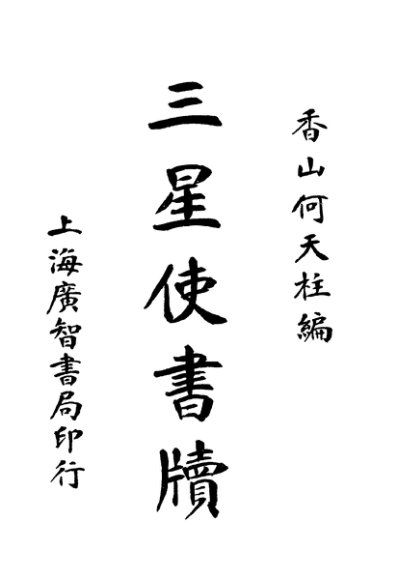 香山何天柱編
三星使書牘
上海廣智書局印行